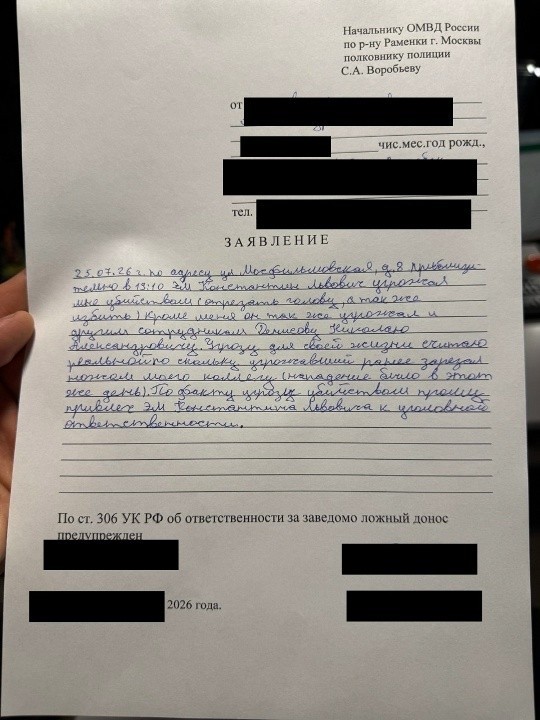 Начальнику ОМВД России
по р-ну Раменки г. Москвы
полковнику полиции
С.А. Воробьеву
от
чис.мес.год рожд.,
тел.
ЗАЯВЛЕНИЕ
25.07.26 г. по адресу ул Мосфильмовская, д.8 приблизи-
тельно в 13:10 Эм Константин Львович угрожал
мне убийством (отрезать голову, а так же
избить) Кроме меня он так же угрожал и
другим сотрудникам Денисову Николаю
Александровичу. Угрозу для своей жизни считаю
реальной по скольку угрожавший ранее зарезал
ножом моего коллегу (нападение было в этот
же день). По факту угрозы убийством прошу
привлеч Эм Константина Львовича к уголовной
ответственности.
По ст. 306 УК РФ об ответственности за заведомо ложный донос
предупрежден
2026 года.